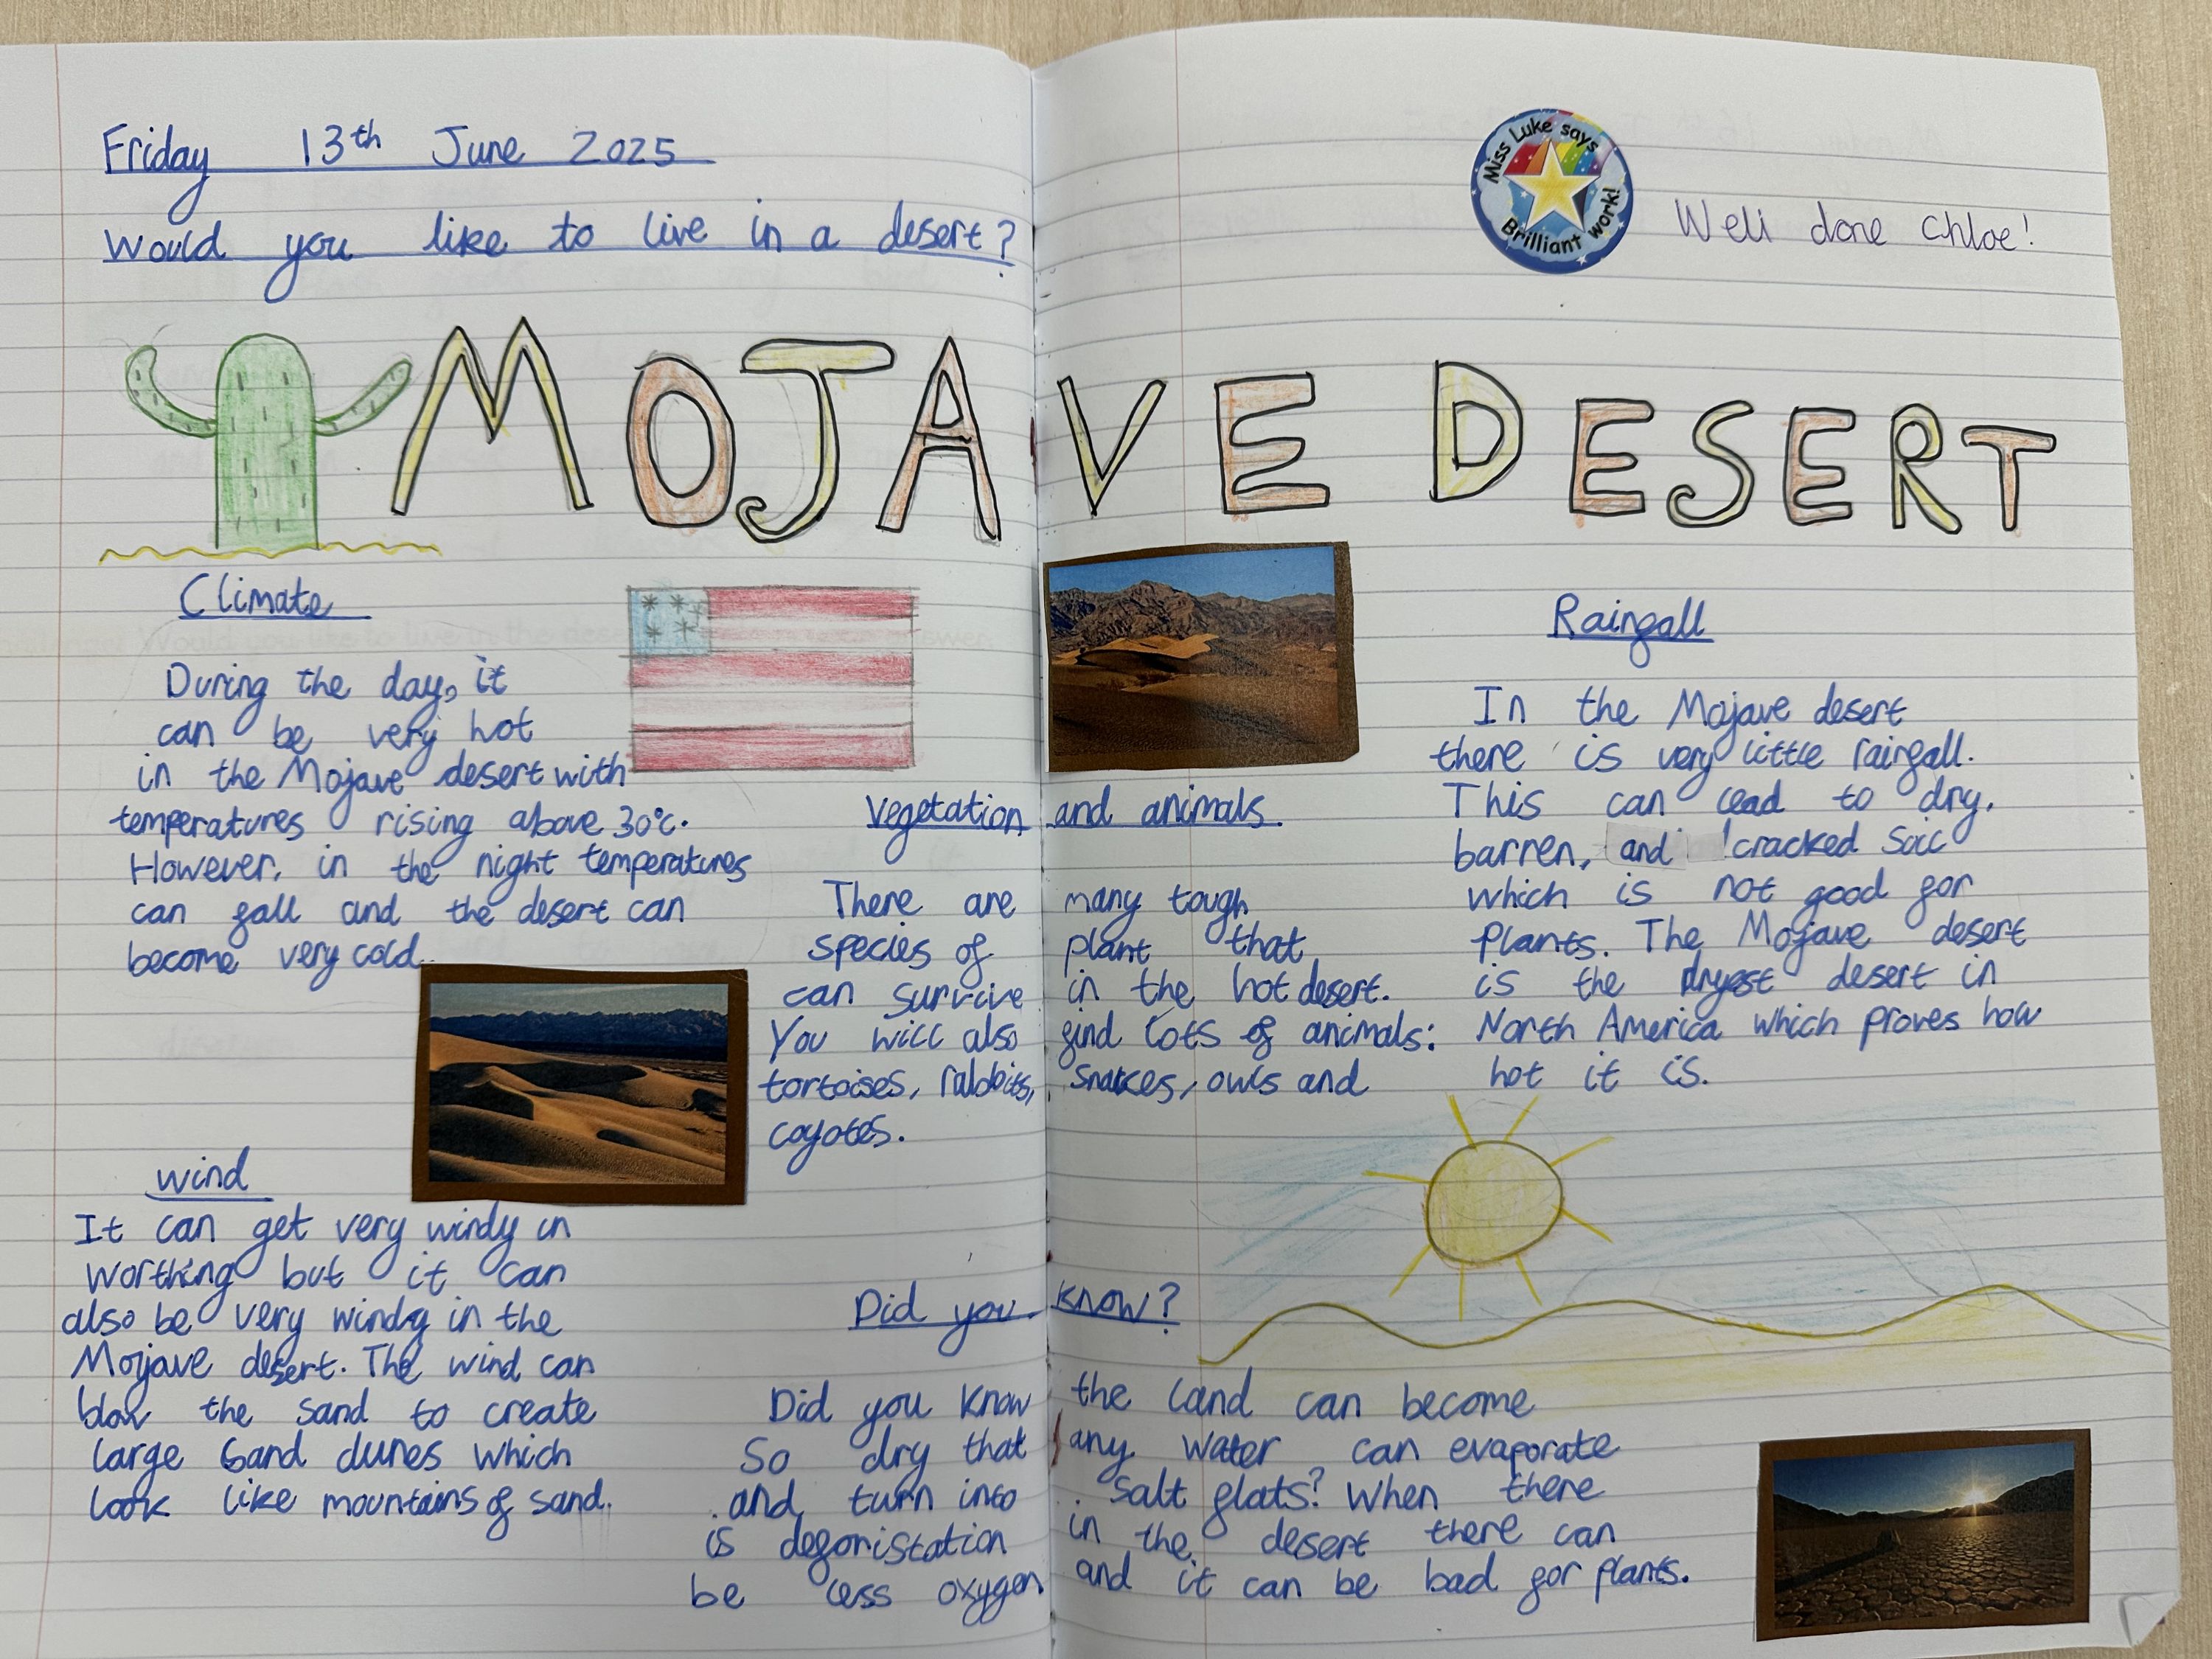 Friday 13th June 2025
Would you like to live in a desert?
Miss Luke says
Brilliant work!
Well done Chloe!
MOJAVE DESERT
Climate
During the day, it
can be very hot
in the Mojave desert with
temperatures rising above 30°c.
However, in the night temperatures
can fall and the desert can
become very cold.
wind
It can get very windy in
Worthing but it can
also be very windy in the
Mojave desert. The wind can
blow the sand to create
large sand dunes which
look like mountains of sand.
Vegetation and animals
There are many tough
species of plant that
can survive in the hot desert.
You will also find lots of animals:
tortoises, rabbits, snakes, owls and
coyotes.
Rainfall
In the Mojave desert
there is very little rainfall.
This can lead to dry,
barren, and cracked soil
which is not good for
plants. The Mojave desert
is the dryest desert in
North America which proves how
hot it is.
Did you know?
Did you know the land can become
so dry that any water can evaporate
and turn into salt flats? When there
is deforistation in the desert there can
be less oxygen and it can be bad for plants.